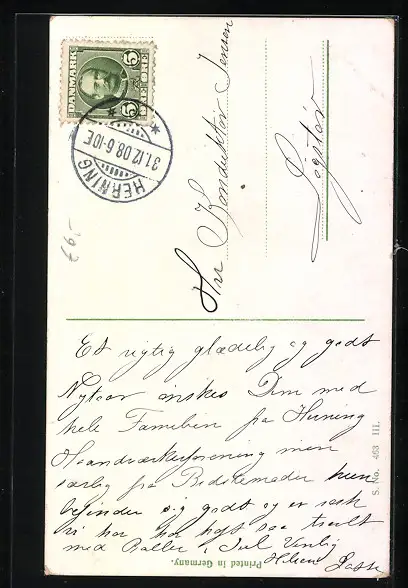 DANMARK
5 5
ØRE
HERNING
31.12.08.6-10E
Hr Konduktør Jensen
Løgstør
Et rigtig glædelig og godt
Nytaar ønskes Dem med
hele Familien fra Herning
Haandværkerforening men
særlig fra Bedstemoder hun
befinder sig godt og er rask
vi har har haft saa travlt
med Baller i Jul Venlig
Hilsen
S. No. 463 III.
Printed in Germany.